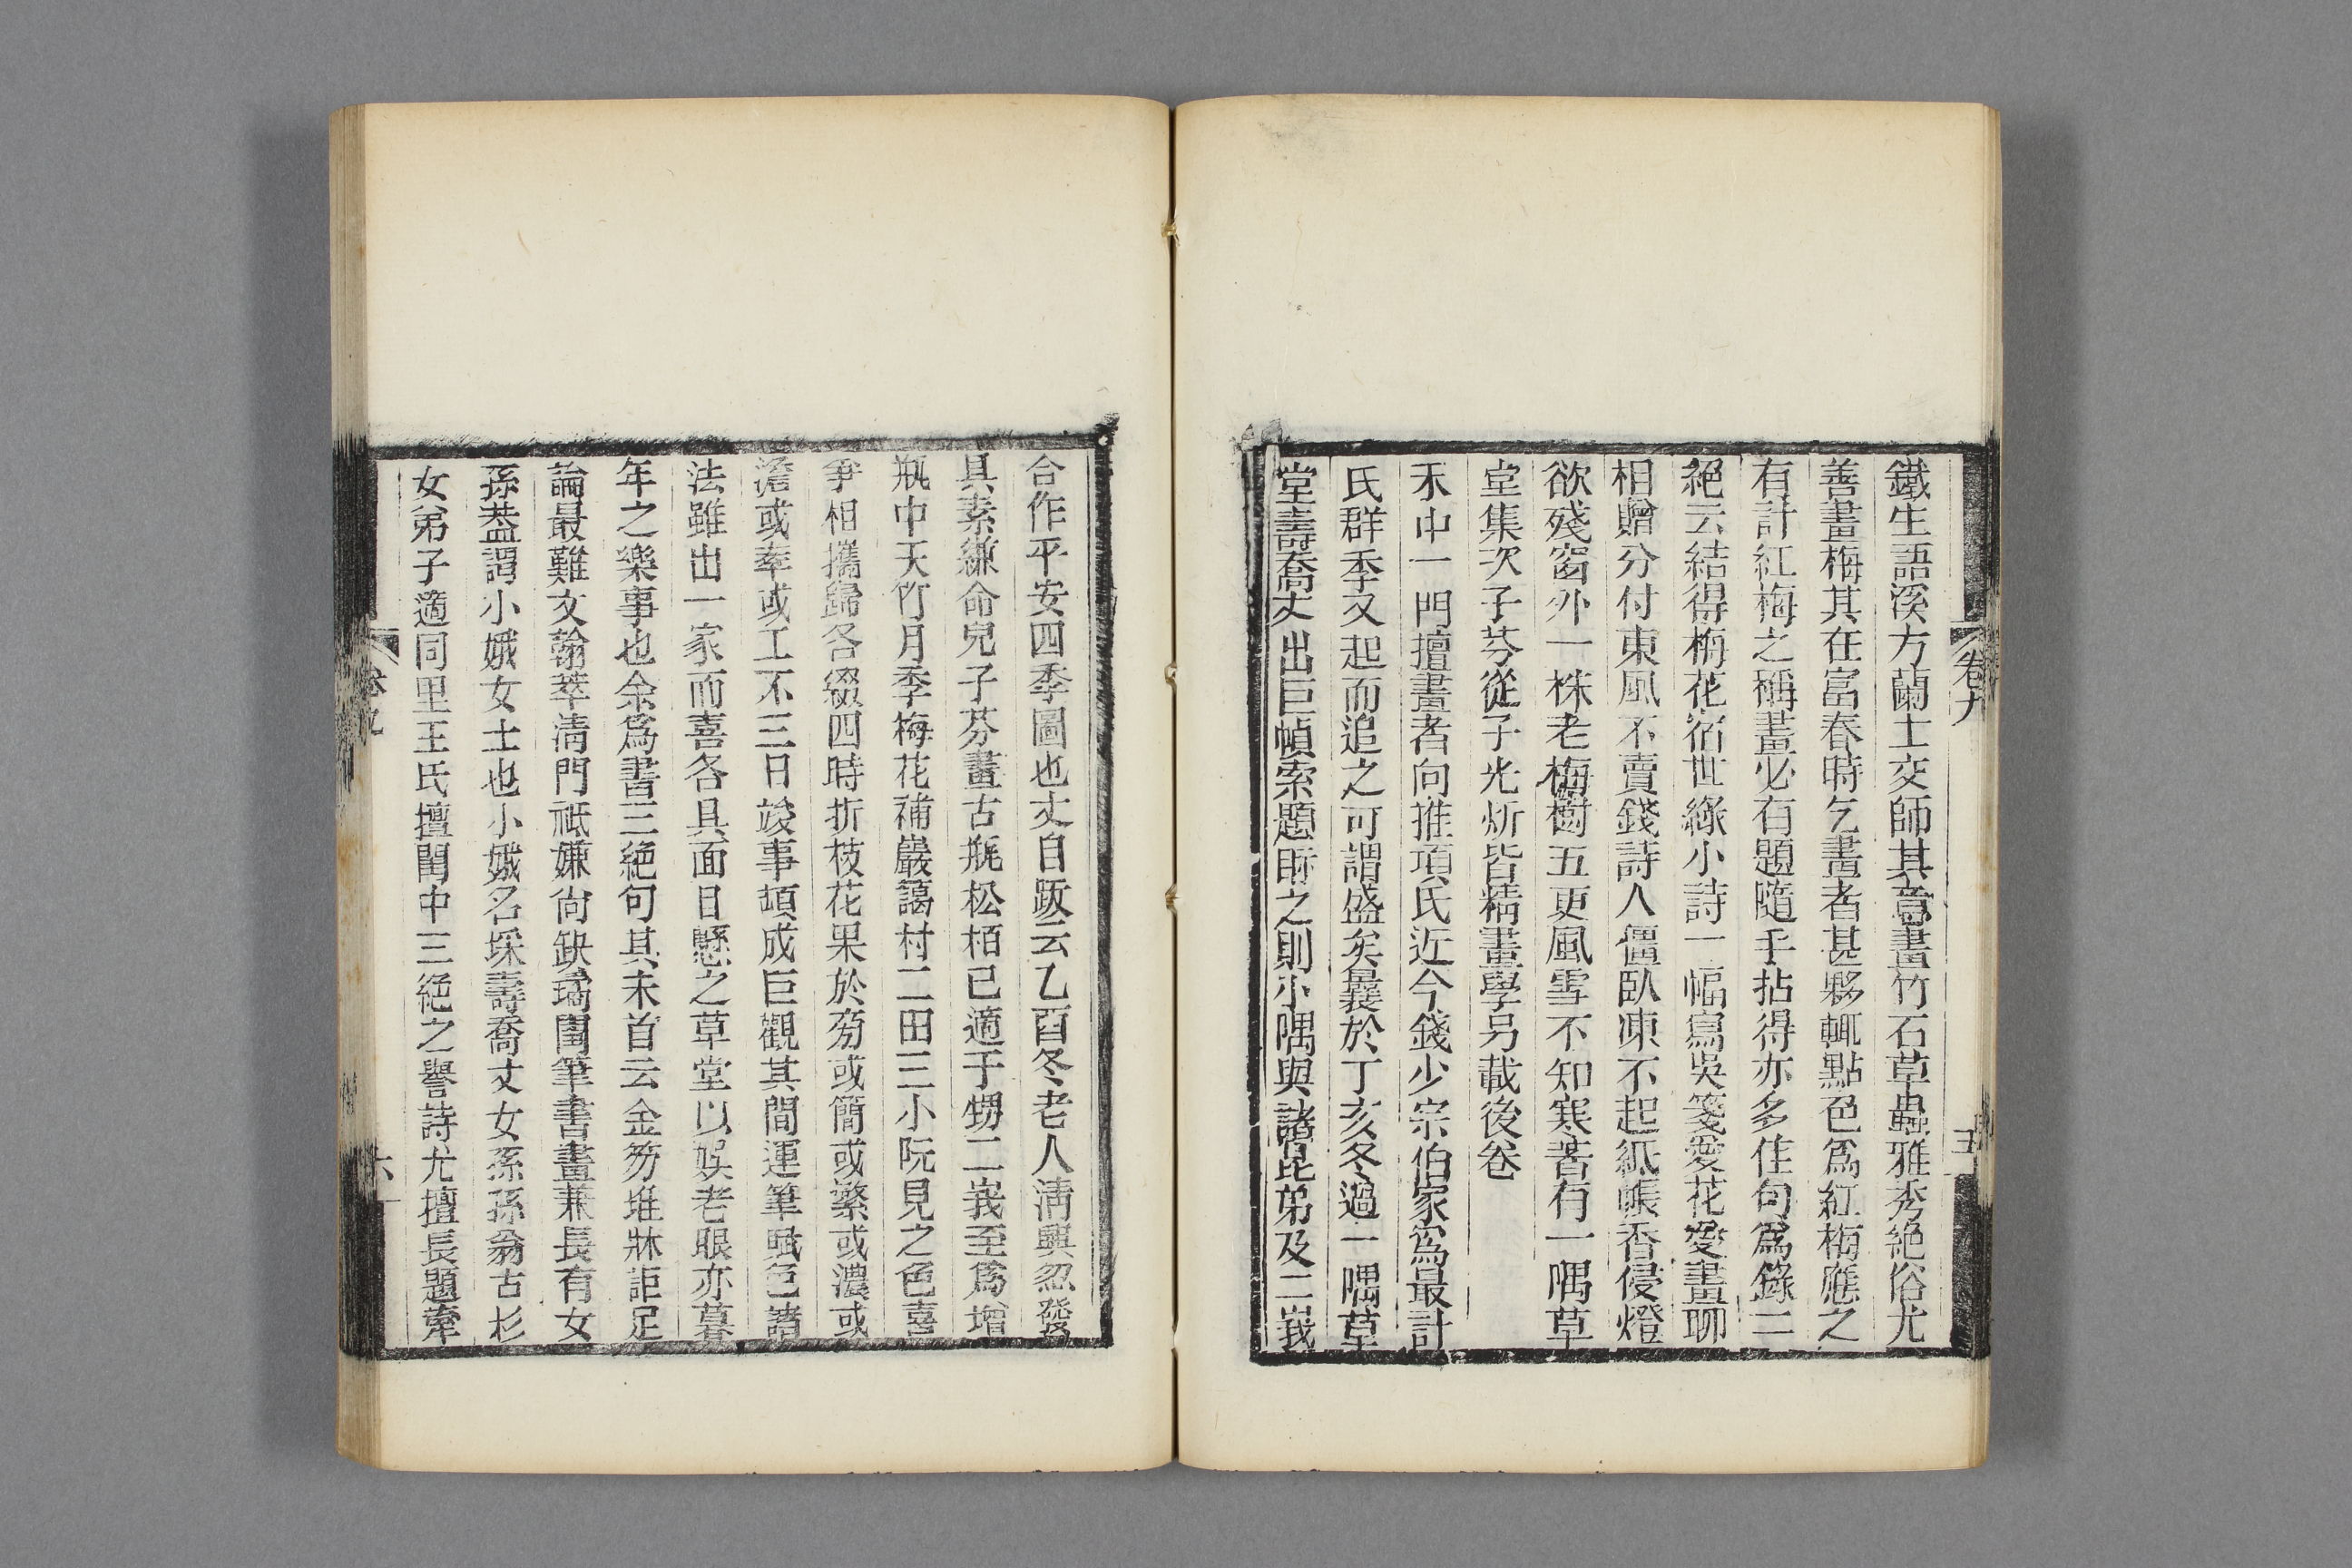 鐵生語溪方蘭士交師其意畫竹石草蟲雅秀絕俗尤
善畫梅其在富春時乞畫者甚夥輒點色爲紅梅應之
有計紅梅之稱畫必有題隨手拈得亦多佳句爲錄二
絕云結得梅花宿世緣小詩一幅寫吳箋愛花愛畫聊
相贈分付東風不賣錢詩人僵臥凍不起紙帳香侵燈
欲殘窗外一株老梅樹五更風雪不知寒著有一隅草
堂集次子芬從子光炘皆精畫學另載後卷
禾中一門擅畫者向推項氏近今錢少宗伯家爲最計
氏群季又起而追之可謂盛矣曩於丁亥冬過一隅草
堂壽喬丈出巨幀索題眎之則小隅與諸昆弟及二峩
卷九
五
合作平安四季圖也丈自跋云乙酉冬老人清興忽發
具素縑命兒子芬畫古瓶松柏已適于甥二峩至爲增
瓶中天竹月季梅花補巖藹村二田三小阮見之色喜
爭相攜歸各綴四時折枝花果於旁或簡或繁或濃或
澹或牽或工不三日竣事頓成巨觀其間運筆賦色諸
法雖出一家而喜各具面目懸之草堂以娛老眼亦暮
年之樂事也余爲書三絕句其末首云金笏堆牀詎足
論最難文翰萃清門祗嫌尚缺璚閨筆書畫兼長有女
孫葢謂小娥女士也小娥名埰壽喬丈女孫孫翁古杉
女弟子適同里王氏擅閨中三絕之譽詩尤擅長題牽
卷九
六